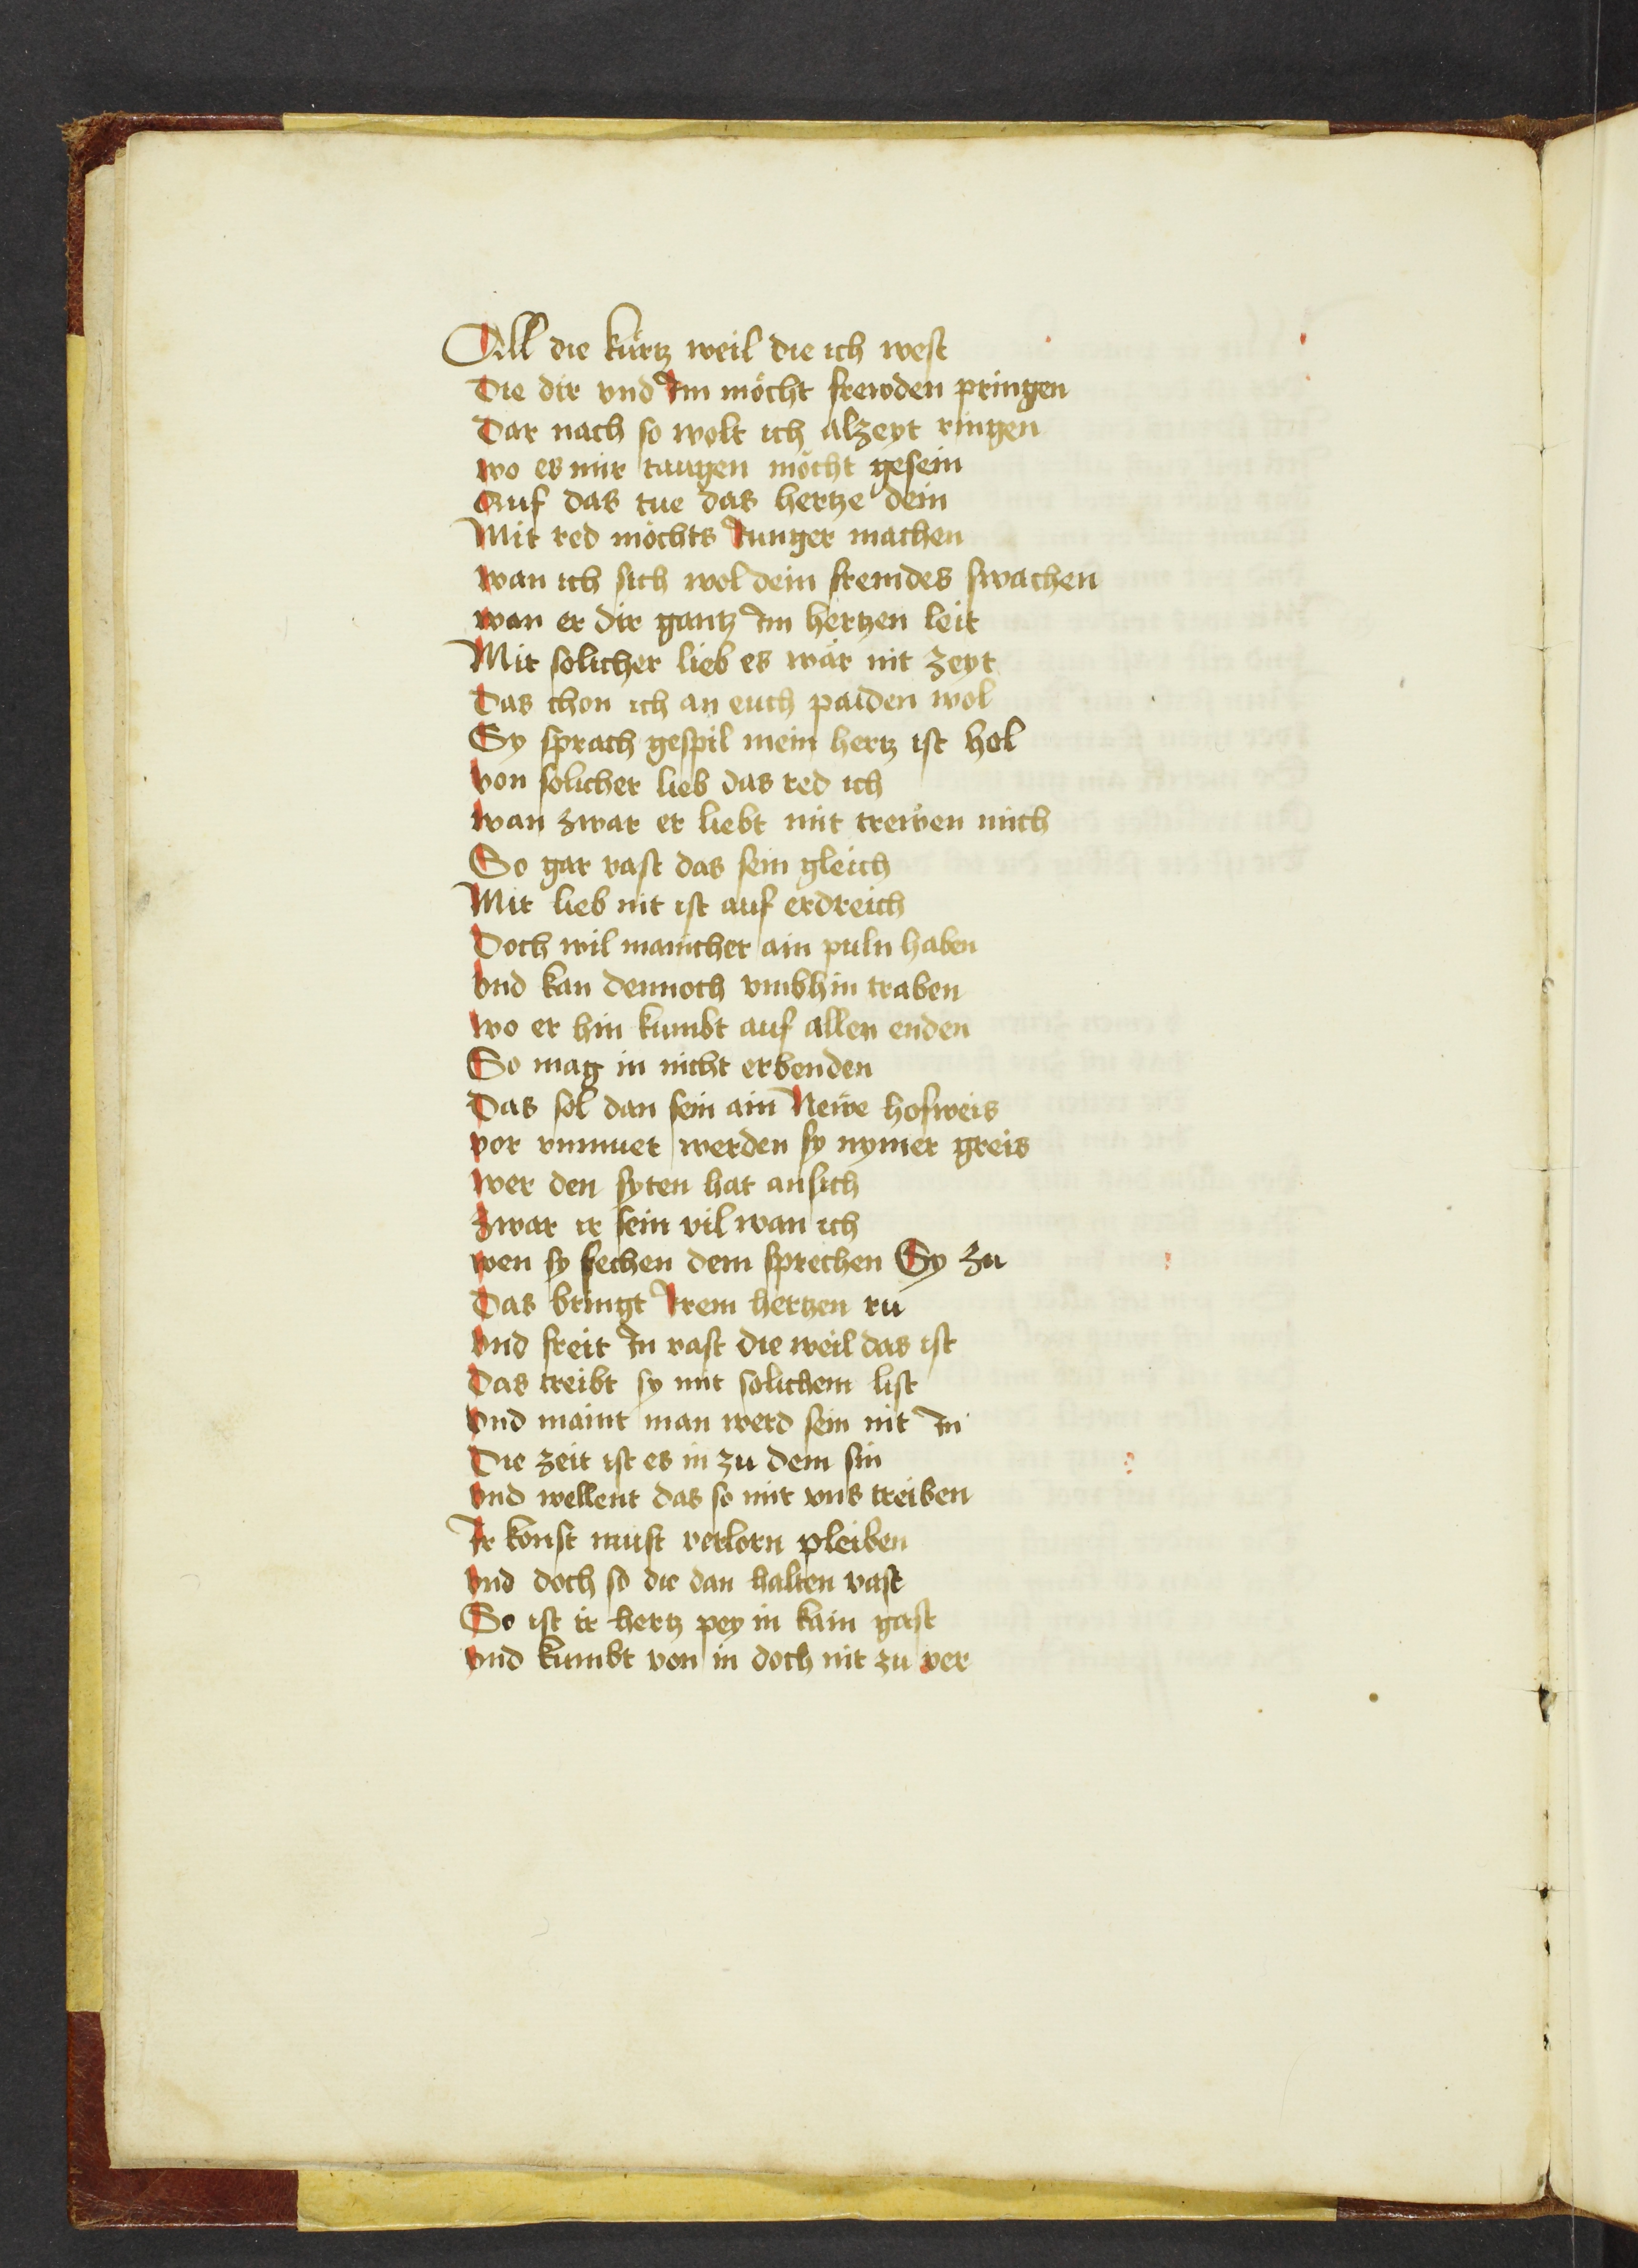 All die kürtz weil die ich west
Die dir vnd Im möcht frewden pringen
Dar nach so wolt ich alzeyt ringen
wo es mir taugen möcht gesein
Auf das tue das hertze dein
Mit red möchts Junger machen
wan ich sich wol dein fremdes swachen
wan er dir gantz Im hertzen leit
Mit solicher lieb es wär nit zeyt
Das chon ich an euch paiden wol
Sy sprach gespil mein hertz ist hol
von solicher lieb das red ich
wan zwar er liebt mit trewen mich
So gar vast das sein gleich
Mit lieb nit ist auf erdreich
Doch wil manicher ain puln haben
vnd kan dennoch vmbhin traben
wo er hin kumbt auf allen enden
So mag in nicht erbenden
Das sol dan sein ain Newe hofweis
vor vnmuet werden sy nymer greis
wer den syten hat ansich
zwar ir sein vil wan ich
wen sy sechen dem sprechen Sy zu
Das bringt Irem hertzen ru
vnd freit In vast die weil das ist
Das treibt sy mit solichem list
vnd maint man werd sein nit In
Die zeit ist es in zu dem sin
vnd wellent das so mit vns treiben
Ir konst must verlorn pleiben
vnd doch so die dan halten vast
So ist ir hertz pey in kain gast
vnd kumbt von in doch nit zu ver